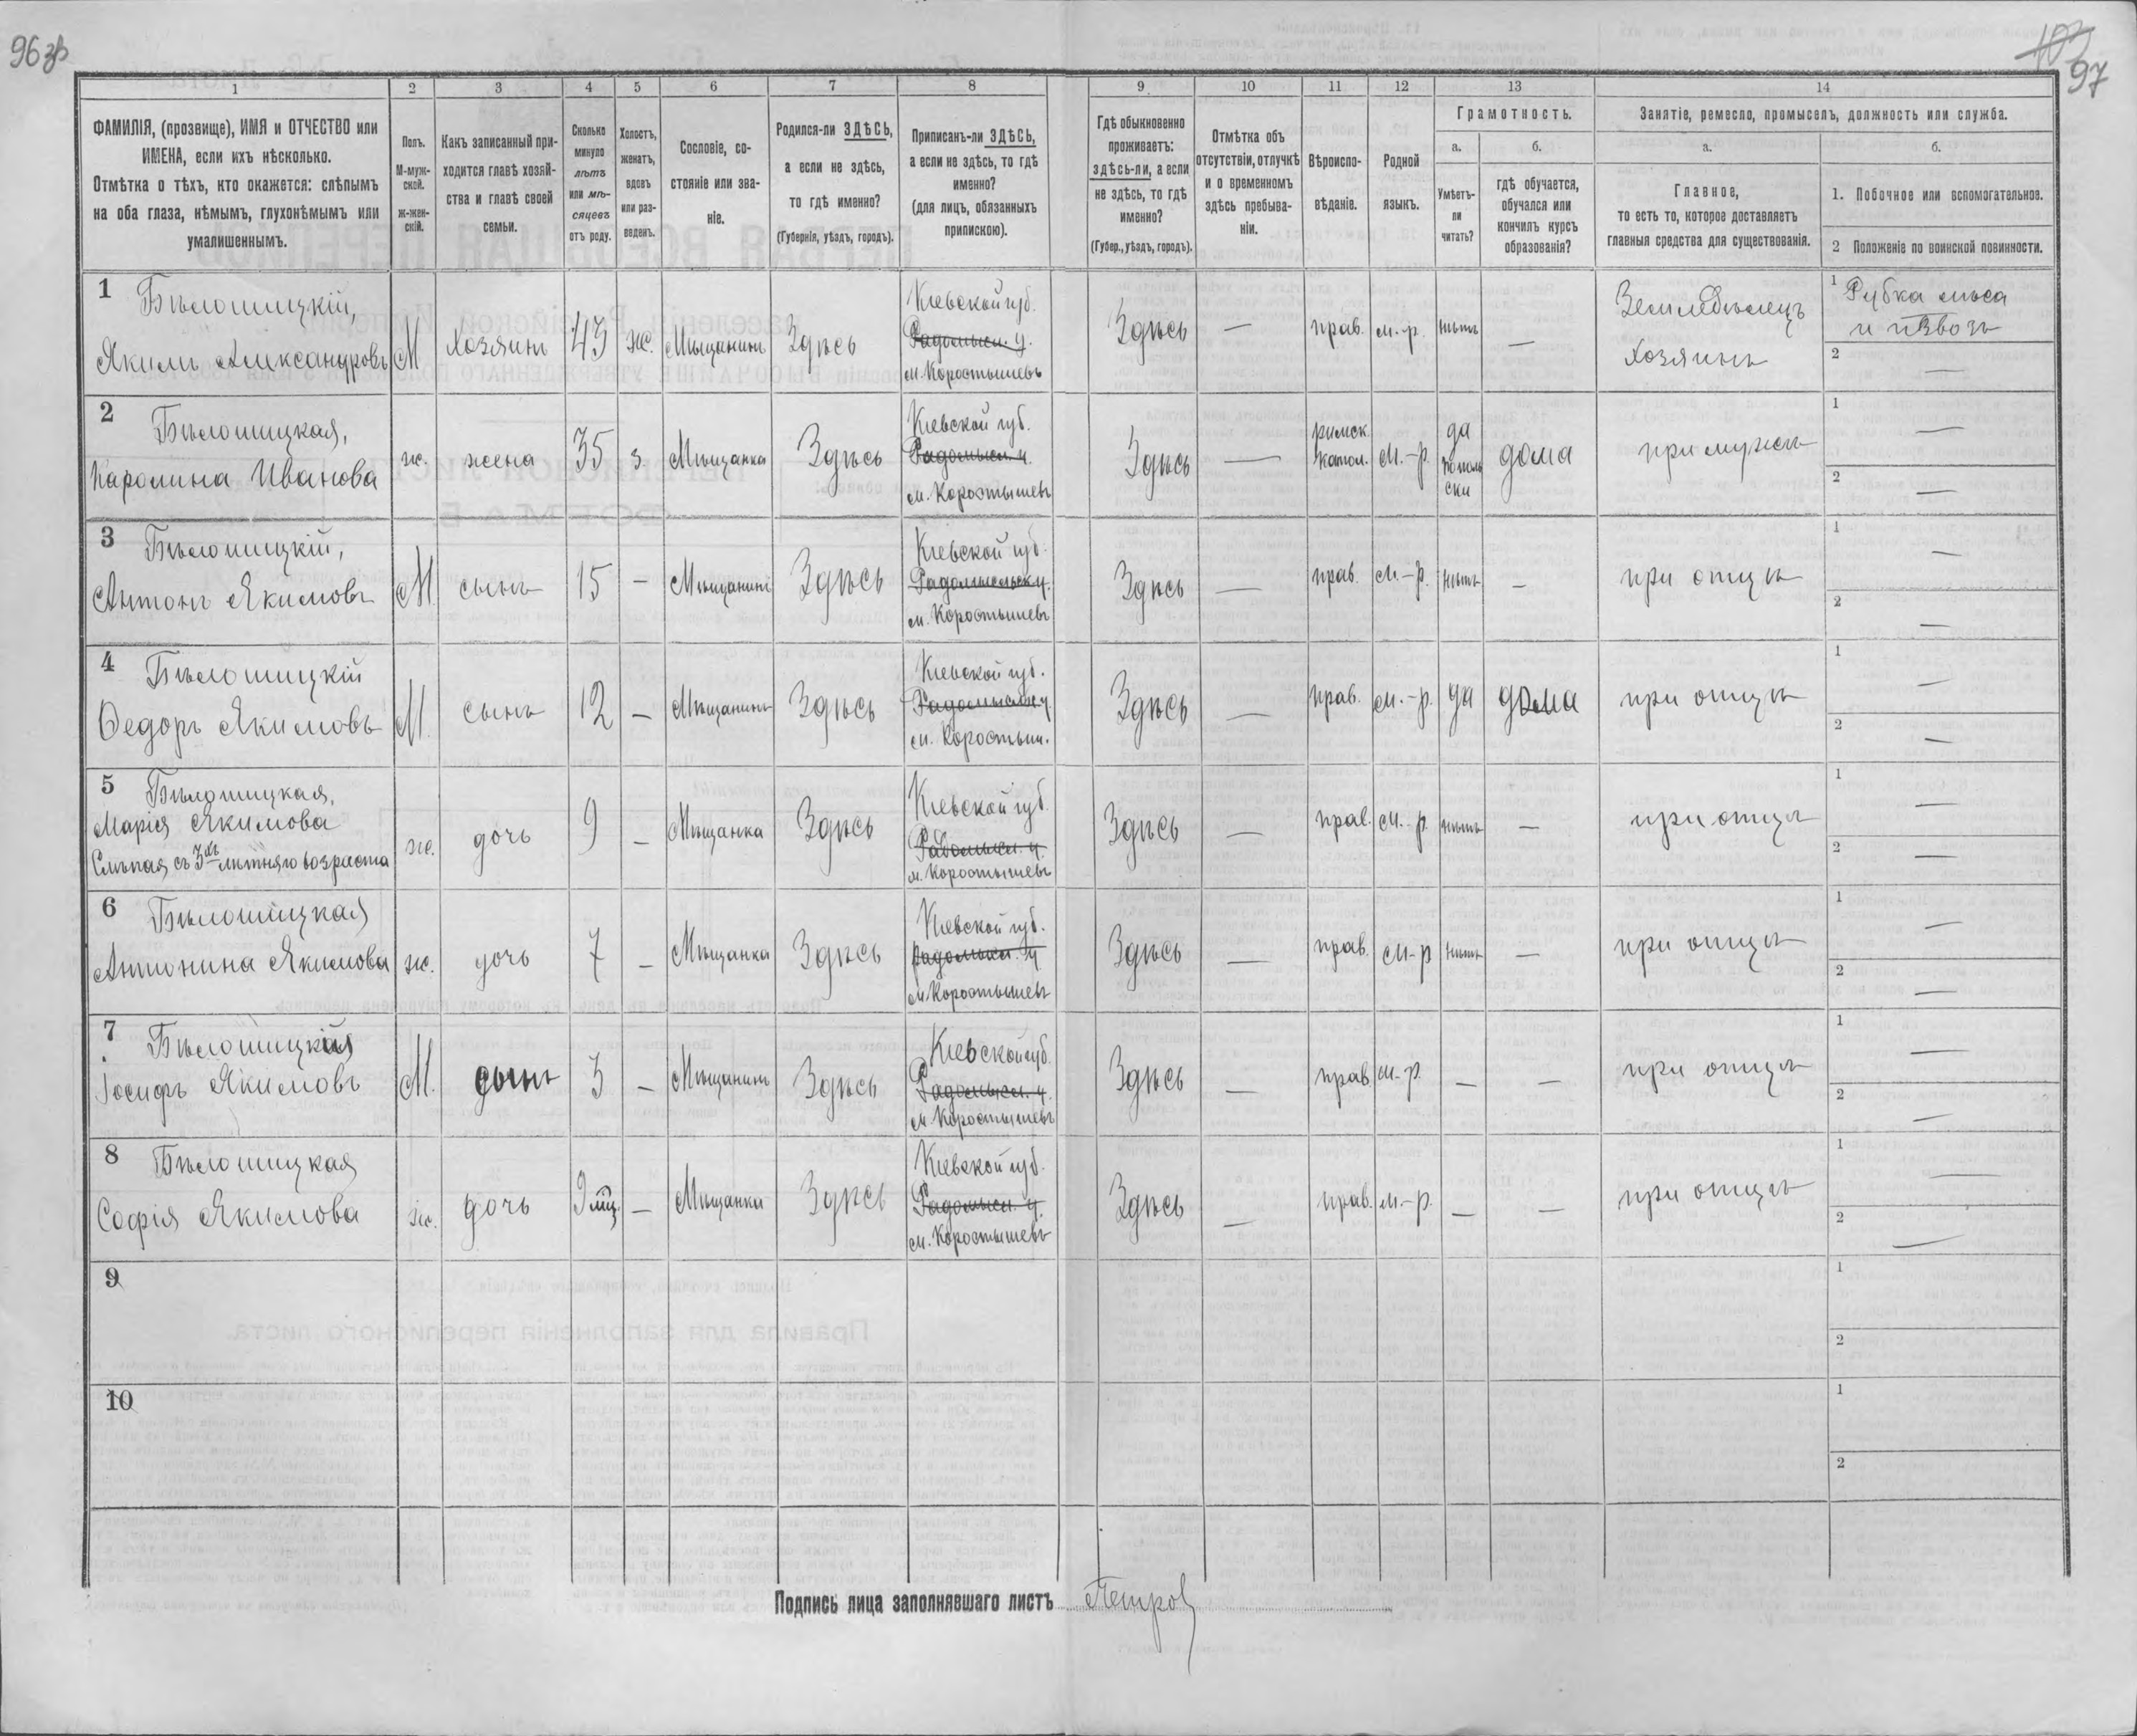 96 зв
103
97
1 2 3 4 5 6 7 8 9 10 11 12 13 14
ФАМИЛІЯ, (прозвище), ИМЯ и ОТЧЕСТВО или
ИМЕНА, если ихъ нѣсколько.
Отмѣтка о тѣхъ, кто окажется: слѣпымъ
на оба глаза, нѣмымъ, глухонѣмымъ или
умалишеннымъ.
Полъ.
М-муж-
ской.
ж-жен-
скій.
Какъ записанный при-
ходится главѣ хозяй-
ства и главѣ своей
семьи.
Сколько
минуло
лѣтъ
или мѣ-
сяцевъ
отъ роду.
Холостъ,
женатъ,
вдовъ
или раз-
веденъ.
Сословіе, со-
стояніе или зва-
ніе.
Родился-ли ЗДѢСЬ,
а если не здѣсь,
то гдѣ именно?
(Губернія, уѣздъ, городъ).
Приписанъ-ли ЗДѢСЬ,
а если не здѣсь, то гдѣ
именно?
(для лицъ, обязанныхъ
припискою).
Гдѣ обыкновенно
проживаетъ:
здѣсь-ли, а если
не здѣсь, то гдѣ
именно?
(Губер., уѣздъ, городъ).
Отмѣтка объ
отсутствіи, отлучкѣ
и о временномъ
здѣсь пребыва-
ніи.
Вѣроиспо-
вѣданіе.
Родной
языкъ.
Грамотность.
а.
Умѣетъ-
ли
читать?
б.
гдѣ обучается,
обучался или
кончилъ курсъ
образованія?
Занятіе, ремесло, промыселъ, должность или служба.
а.
Главное,
то есть то, которое доставляетъ
главныя средства для существованія.
б.
1. Побочное или вспомогательное.
2 Положеніе по воинской повинности.
1 Бѣлошицкій,
Якимъ Александровъ
М хозяинъ 43 ж. Мѣщанинъ Здѣсь
Кіевской губ.
Радомысл. у.
м. Коростышевъ
Здѣсь — прав. м.-р. нѣтъ —
Земледѣлецъ
хозяинъ
1 Рубка лѣса
и извозъ
2 —
2 Бѣлошицкая,
Каролина Иванова
ж. жена 35 з. Мѣщанка Здѣсь
Кіевской губ.
Радомысл. у.
м. Коростышевъ
Здѣсь —
римск.
катол.
м.-р.
да
по поль
ски
дома при мужѣ
1 —
2 —
3 Бѣлошицкій,
Антонъ Якимовъ
М сынъ 15 — Мѣщанинъ Здѣсь
Кіевской губ.
Радомысльск. у.
м. Коростышевъ
Здѣсь — прав. м.-р. нѣтъ — при отцѣ
1 —
2 —
4 Бѣлошицкій
Ѳедоръ Якимовъ
М. сынъ 12 — Мѣщанинъ Здѣсь
Кіевской губ.
Радомысл. у.
м. Коростыш.
Здѣсь — прав. м.-р. да дома при отцѣ
1 —
2 —
5 Бѣлошицкая,
Марія Якимова
Слѣпая съ 3хъ лѣтняго возраста
ж. дочь 9 — Мѣщанка Здѣсь
Кіевской губ.
Радомысл. у.
м. Коростышевъ
Здѣсь — прав. м.-р. нѣтъ — при отцѣ
1 —
2 —
6 Бѣлошицкая
Антонина Якимова
ж. дочь 7 — Мѣщанка Здѣсь
Кіевской губ.
Радомысл. у.
м. Коростышевъ
Здѣсь — прав. м-р нѣтъ — при отцѣ
1 —
2 —
7 Бѣлошицкій
Іосифъ Якимовъ
М. сынъ 3 — Мѣщанинъ Здѣсь
Кіевской губ.
Радомысл. у.
м. Коростышевъ
Здѣсь — прав. м.-р. — — при отцѣ
1 —
2 —
8 Бѣлошицкая
Софія Якимова
ж. дочь 9 мц. — Мѣщанка Здѣсь
Кіевской губ.
Радомысл. у.
м. Коростышевъ
Здѣсь — прав. м.-р. — — при отцѣ
1 —
2 —
9
1
2
10
1
2
Подпись лица заполнявшаго листъ Петров